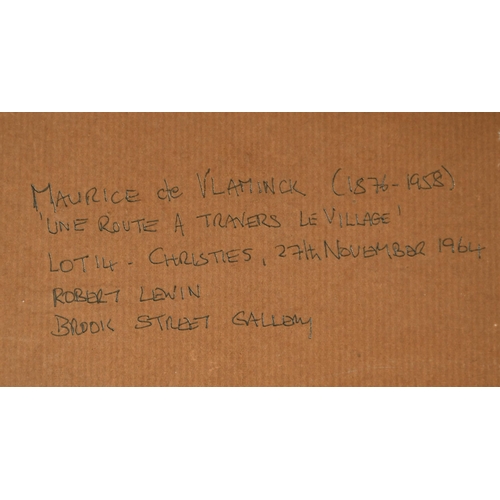 MAURICE de VLAMINCK (1876-1958)
'UNE ROUTE A TRAVERS LE VILLAGE'
LOT 14 - CHRISTIES, 27th NOVEMBER 1964
ROBERT LEWIN
BROOK STREET GALLERY